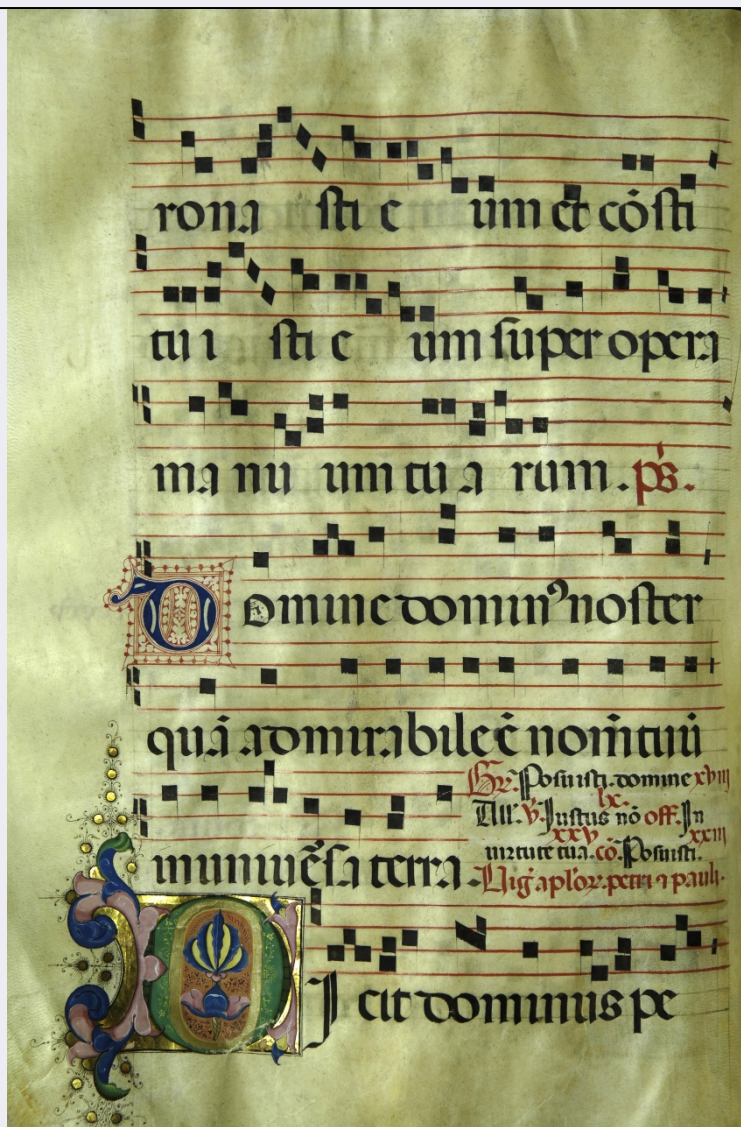 rona sti e um et cōsti
tu i sti e um super opera
ma nu um tu a rum. ps.
Domine dominꝰ noster
quā admirabile ē nom̄ tuū
in uniuēsa terra.
Gr. Posuisti. domine xviii
All'. v. Iustus nō lx. off. In
xxv xxiii
uirtute tua. cō. Posuisti.
Uiḡ aplōꝝ. petri ⁊ pauli.
Dicit dominus pe